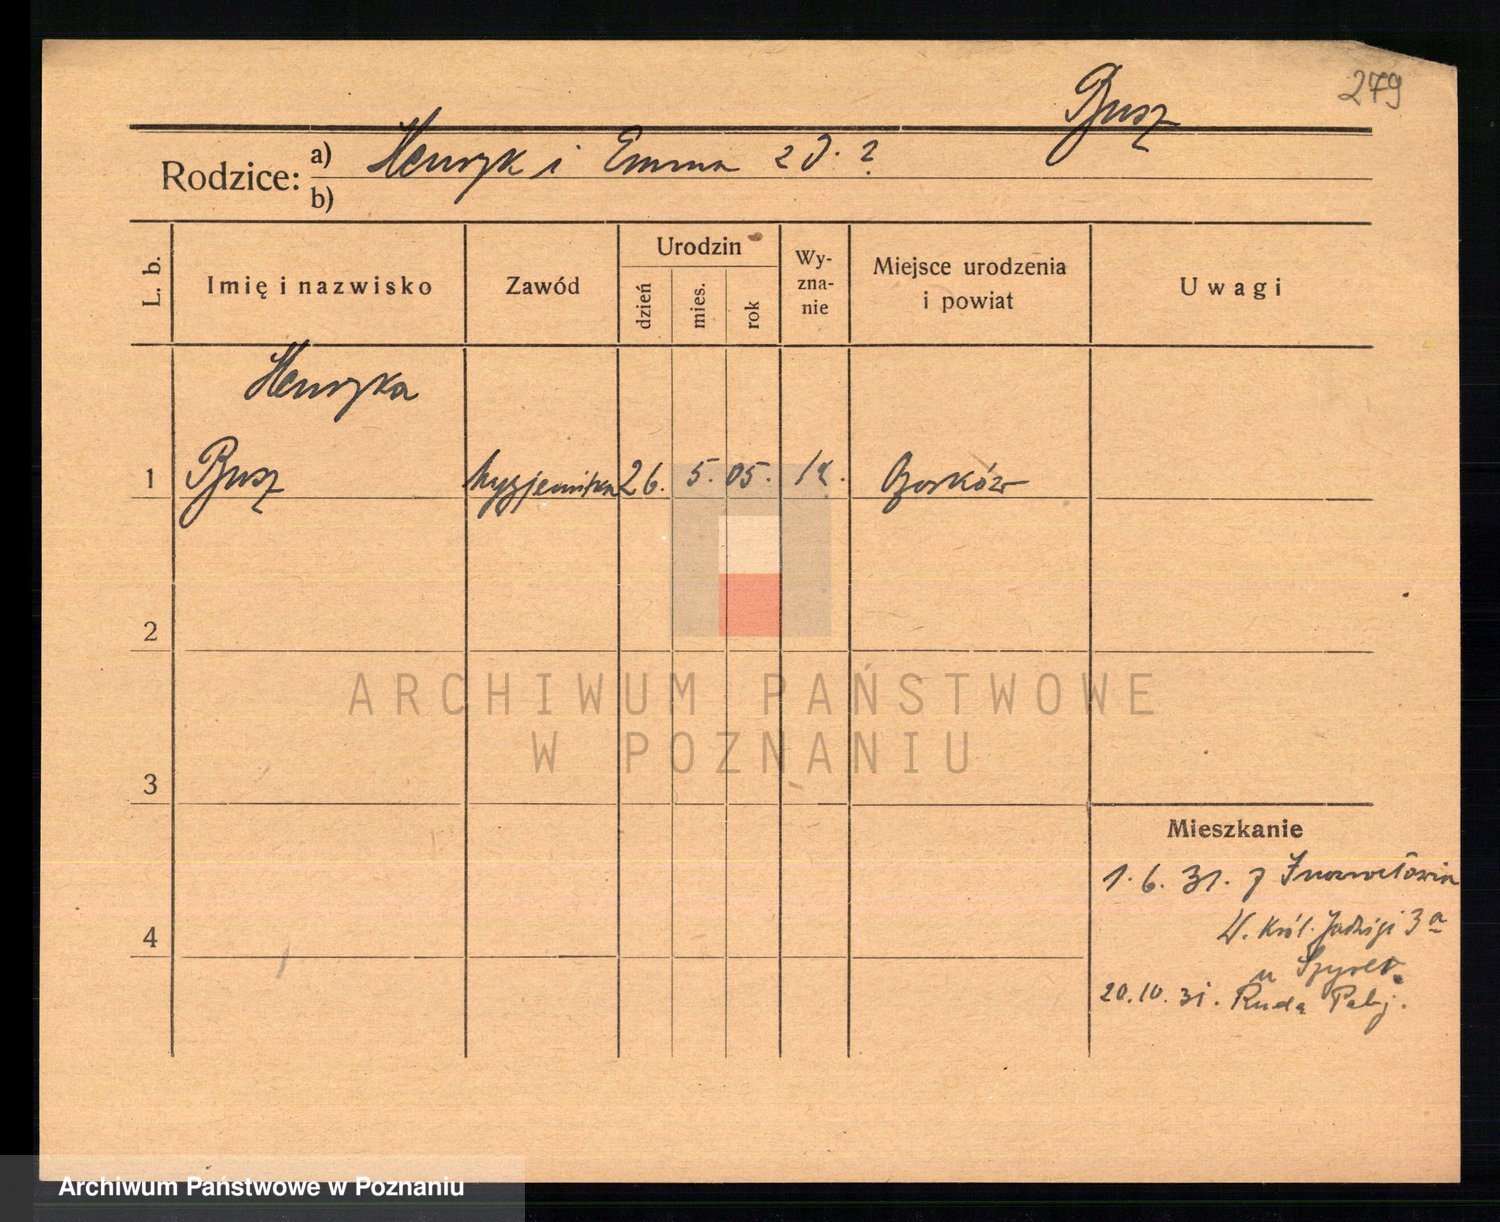 279
Busz
Rodzice: a) Henryk i Emma z d. ?
b)
L. b.
Imię i nazwisko
Zawód
Urodzin
dzień
mies.
rok
Wy-
zna-
nie
Miejsce urodzenia
i powiat
Uwagi
Henryka
1 Busz hygjenistka 26. 5. 05. Borków
2
3
4
ARCHIWUM PAŃSTWOWE
W POZNANIU
Mieszkanie
1. 6. 31. z Inowrocławia
Król. Jadwigi 3a
u
20. 10. 31. Ruda Pabj.
Archiwum Państwowe w Poznaniu